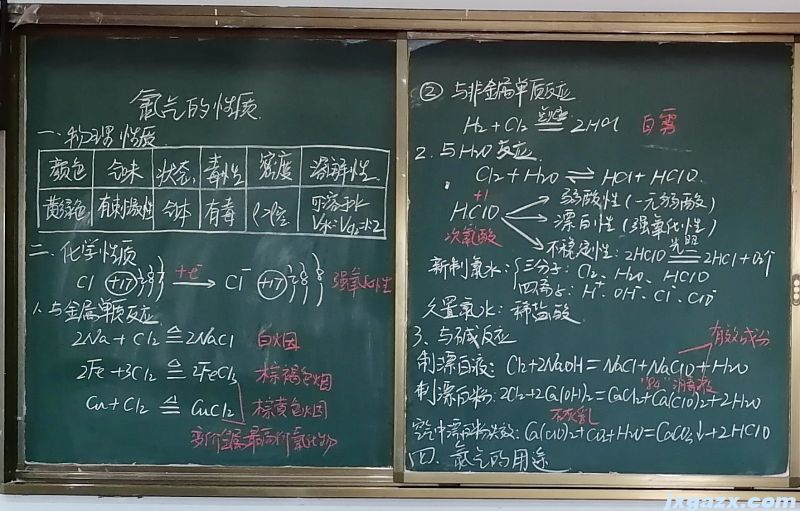 氯气的性质
一、物理性质
颜色 气味 状态 毒性 密度 溶解性
黄绿色 有刺激性 气体 有毒 ρ>ρ空 可溶于水 V水:V Cl₂=1:2
二、化学性质
Cl (+17) +e⁻ → Cl⁻ (+17) 强氧化性
1、与金属单质反应
2Na + Cl₂ ≜ 2NaCl 白烟
2Fe + 3Cl₂ ≜ 2FeCl₃ 棕褐色烟
Cu + Cl₂ ≜ CuCl₂ 棕黄色烟
变价金属最高价氯化物
② 与非金属单质反应
H₂ + Cl₂ 点燃= 2HCl 白雾
2、与H₂O反应
Cl₂ + H₂O ⇌ HCl + HClO
+1
HClO 弱酸性(一元弱酸)
次氯酸 漂白性(强氧化性)
不稳定性: 2HClO 光照= 2HCl + O₂↑
新制氯水: { 三分子: Cl₂、H₂O、HClO
四离子: H⁺、OH⁻、Cl⁻、ClO⁻
久置氯水: 稀盐酸
3、与碱反应 有效成分
制漂白液: Cl₂+2NaOH=NaCl+NaClO+H₂O
"84"消毒液
制漂白粉: 2Cl₂+2Ca(OH)₂=CaCl₂+Ca(ClO)₂+2H₂O
石灰乳
空气中漂白粉失效: Ca(ClO)₂+CO₂+H₂O=CaCO₃↓+2HClO
四、氯气的用途
jxgazx.com